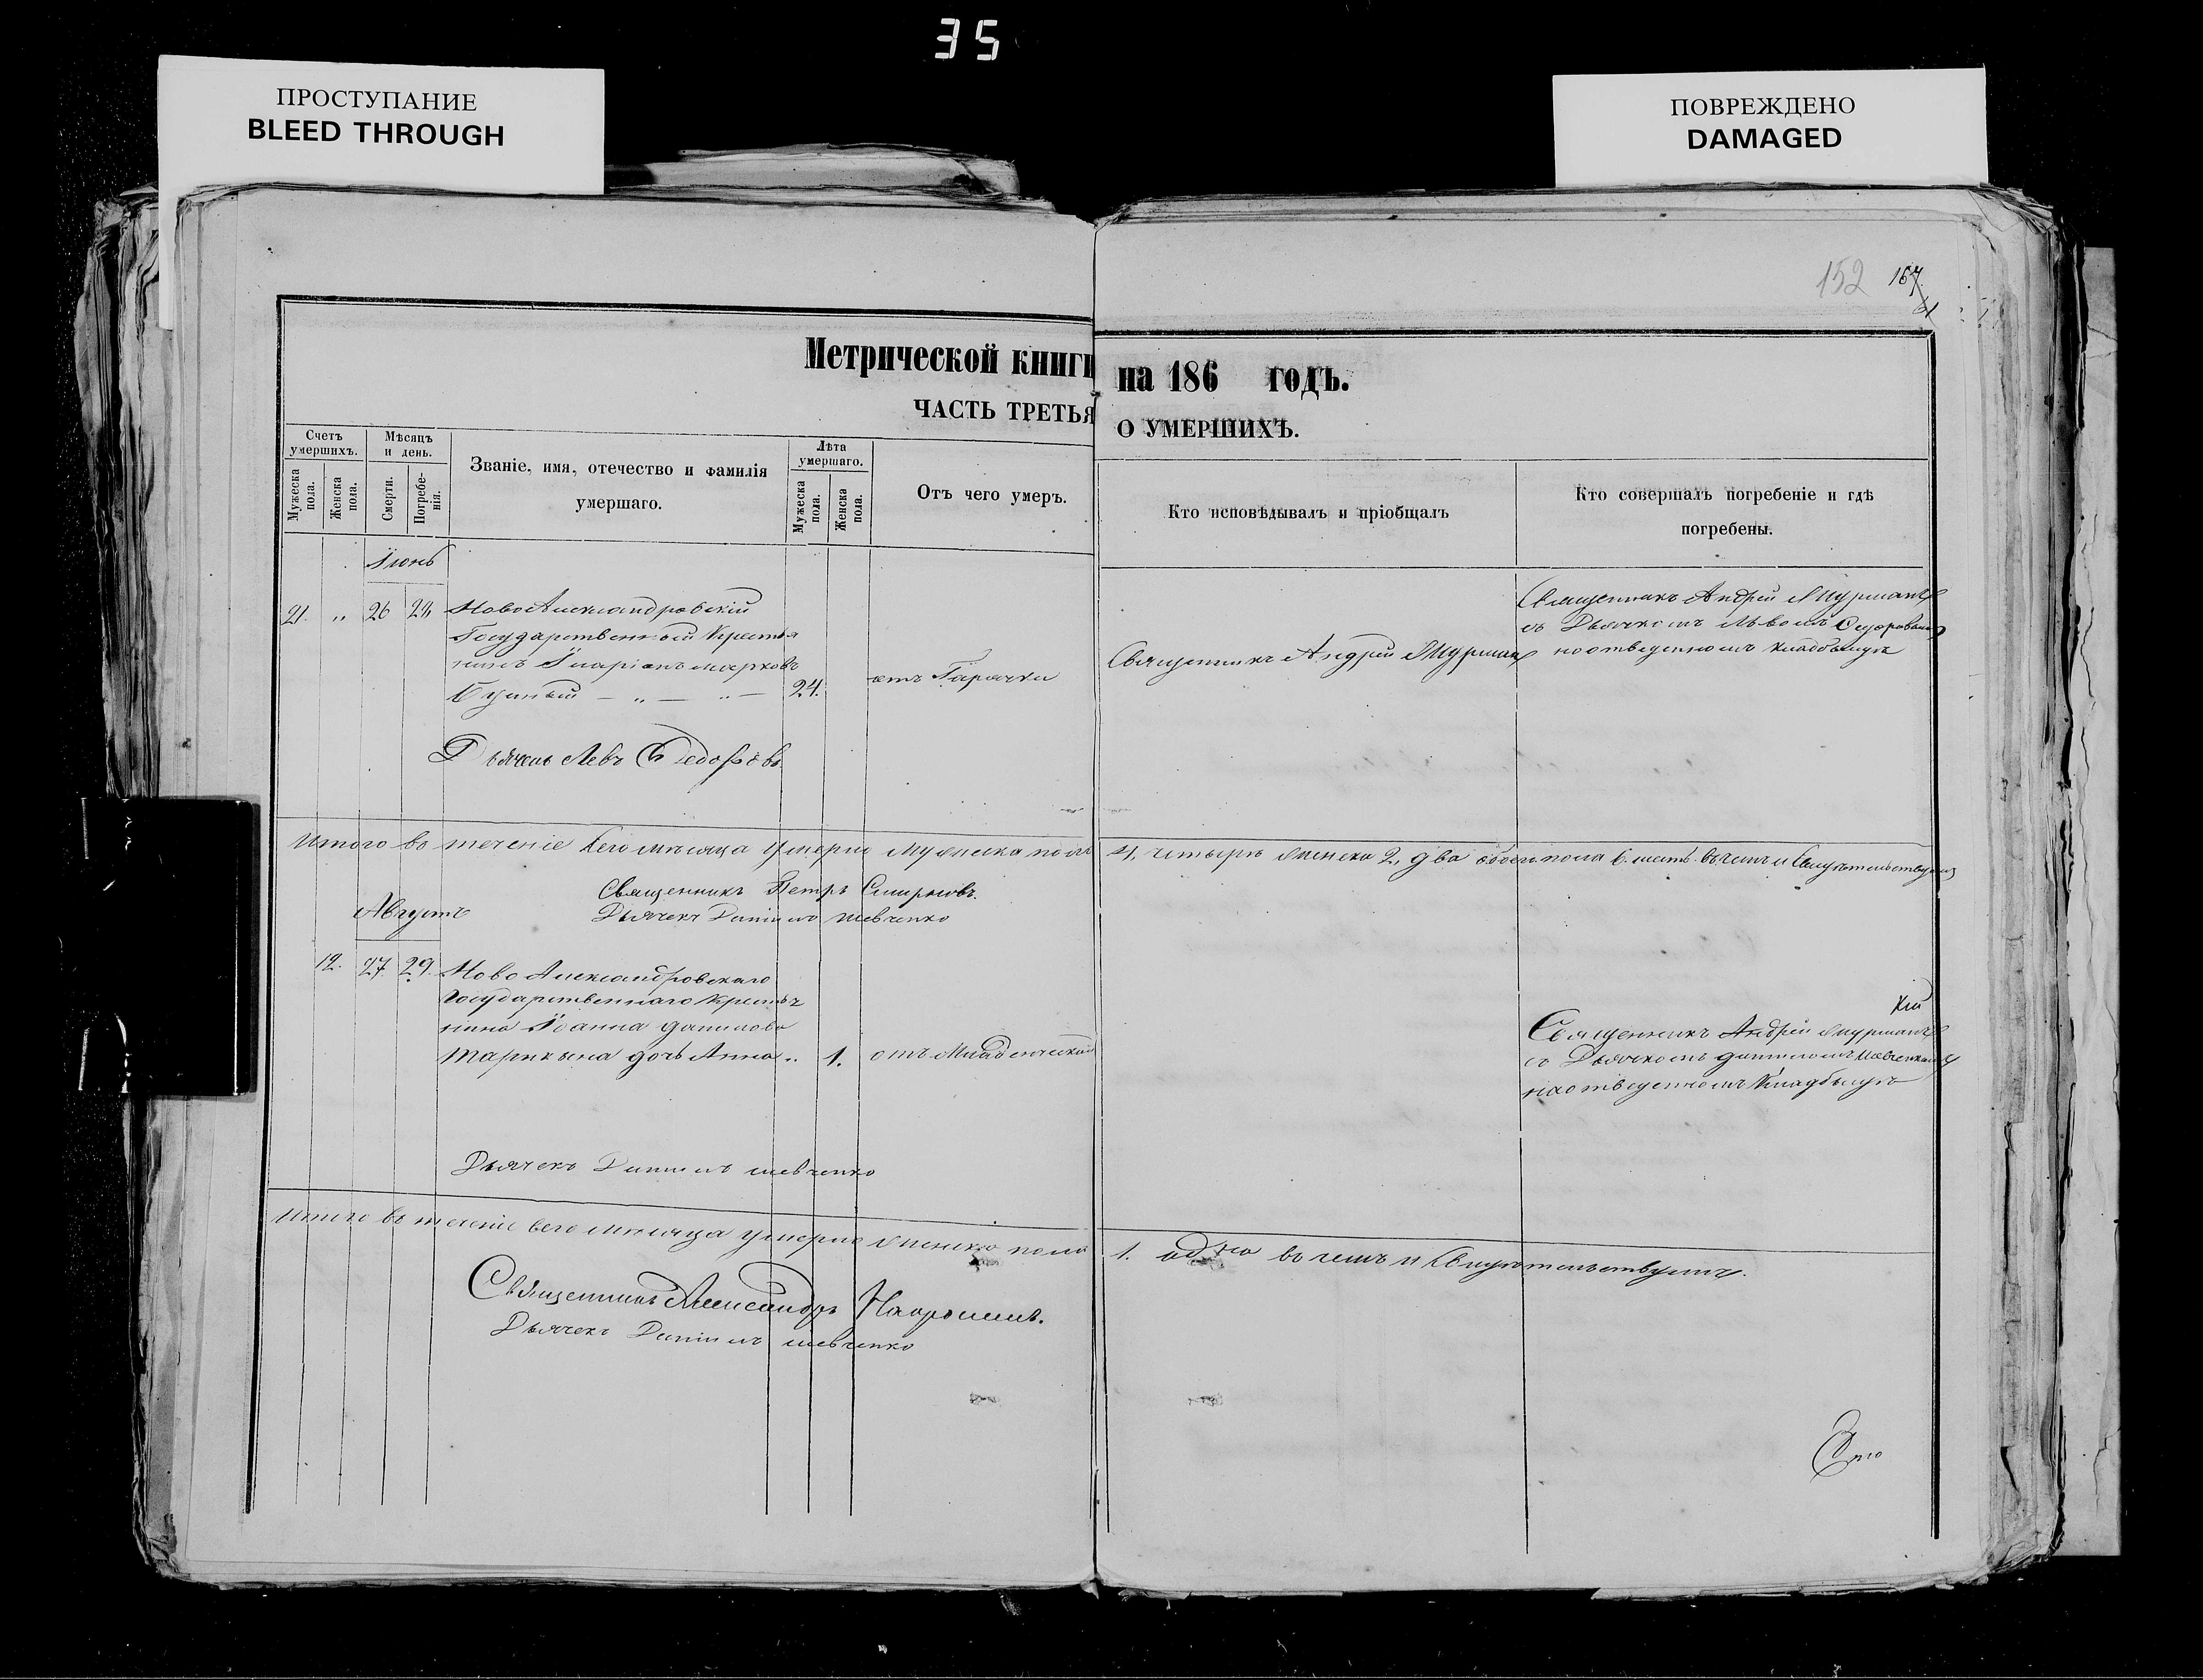 35
ПРОСТУПАНИЕ
BLEED THROUGH
ПОВРЕЖДЕНО
DAMAGED
152 167
Метрической книги на 186 годъ.
ЧАСТЬ ТРЕТЬЯ О УМЕРШИХЪ.
Счетъ умершихъ.
Мужеска пола.
Женска пола.
Мѣсяцъ и день.
Смерти.
Погребенія.
Званіе, имя, отечество и фамилія
умершаго.
Лѣта умершаго.
Мужеска пола.
Женска пола.
Отъ чего умеръ.
Кто исповѣдывалъ и пріобщалъ
Кто совершалъ погребеніе и гдѣ
погребены.
Іюнь
21. „ 26
НовоАлександровскій
Государственный Крестья
нинъ Іларіанъ Марковъ
24.
отъ Гарячки
Священникъ Андрей
Священникъ Андрей
съ Дьячкомъ Львомъ
на отведенномъ кладбищѣ
Дьячекъ Левъ Федоровъ
Итого въ теченіе сего мѣсяца умерло Мужеска пола 4, четыре женска 2, два обоего пола 6. шесть въ чемъ и Свидѣтельствуемъ
Священникъ Петръ Смирновъ.
Дьячекъ Даніилъ Шевченко
Августъ
12. 27 29.
Ново Александровскаго
Государственнаго Крестья
нина Іоанна Данилова
дочь Анна „ 1. отъ Младенческой
Священникъ Андрей
съ Дьячкомъ Даниломъ Шевченкомъ
на отведенномъ Кладбищѣ
Дьячекъ Даніилъ Шевченко
Итого въ теченіе сего мѣсяца умерло женска пола 1. одна въ чемъ и Свидѣтельствуемъ.
Священникъ Александръ
Дьячекъ Даніилъ Шевченко